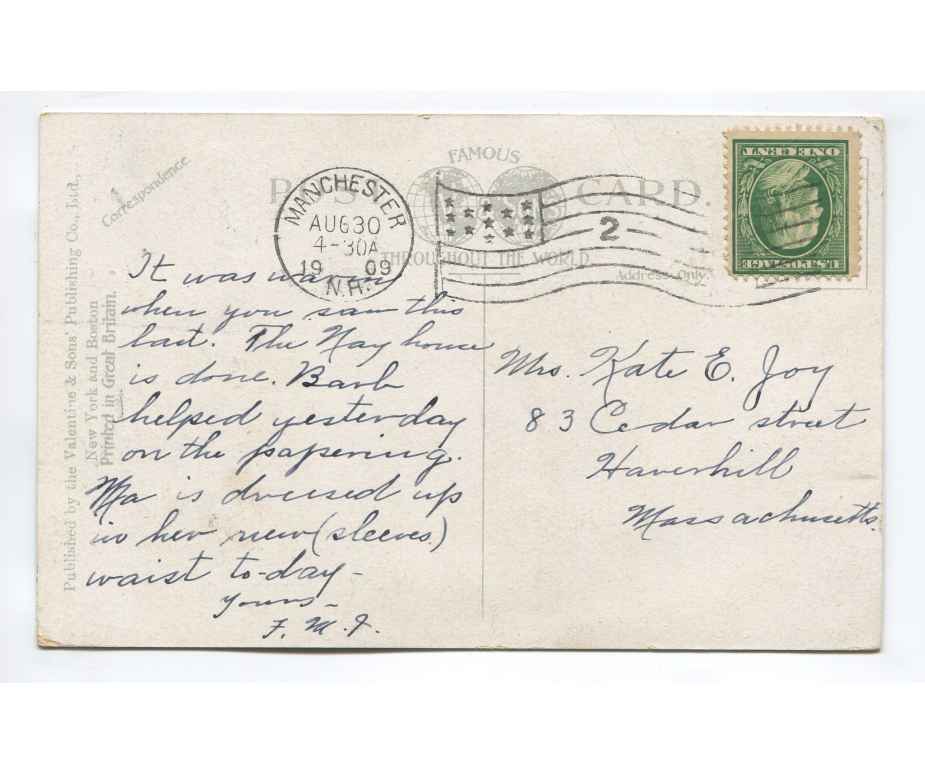 Published by the Valentine & Sons' Publishing Co., Ltd.,
New York and Boston
Printed in Great Britain.
Correspondence
FAMOUS
POST CARD.
THROUGHOUT THE WORLD.
Address Only
MANCHESTER
AUG 30
4-30A
1909
N.H.
2
U.S. POSTAGE
ONE CENT
It was warm
when you saw this
last. The Hay house
is done. Barb
helped yesterday
on the papering.
Ma is dressed up
in her new (sleeves)
waist to-day -
Yours -
F. M. J.
Mrs. Kate E. Joy
83 Cedar street
Haverhill
Massachusetts.